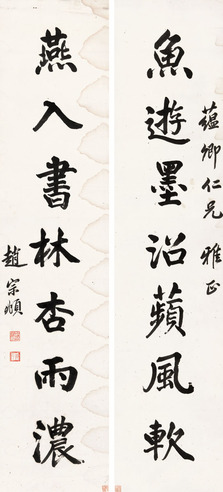 蘊卿仁兄 雅正
魚遊墨沼蘋風軟
燕入書林杏雨濃
趙宗頫